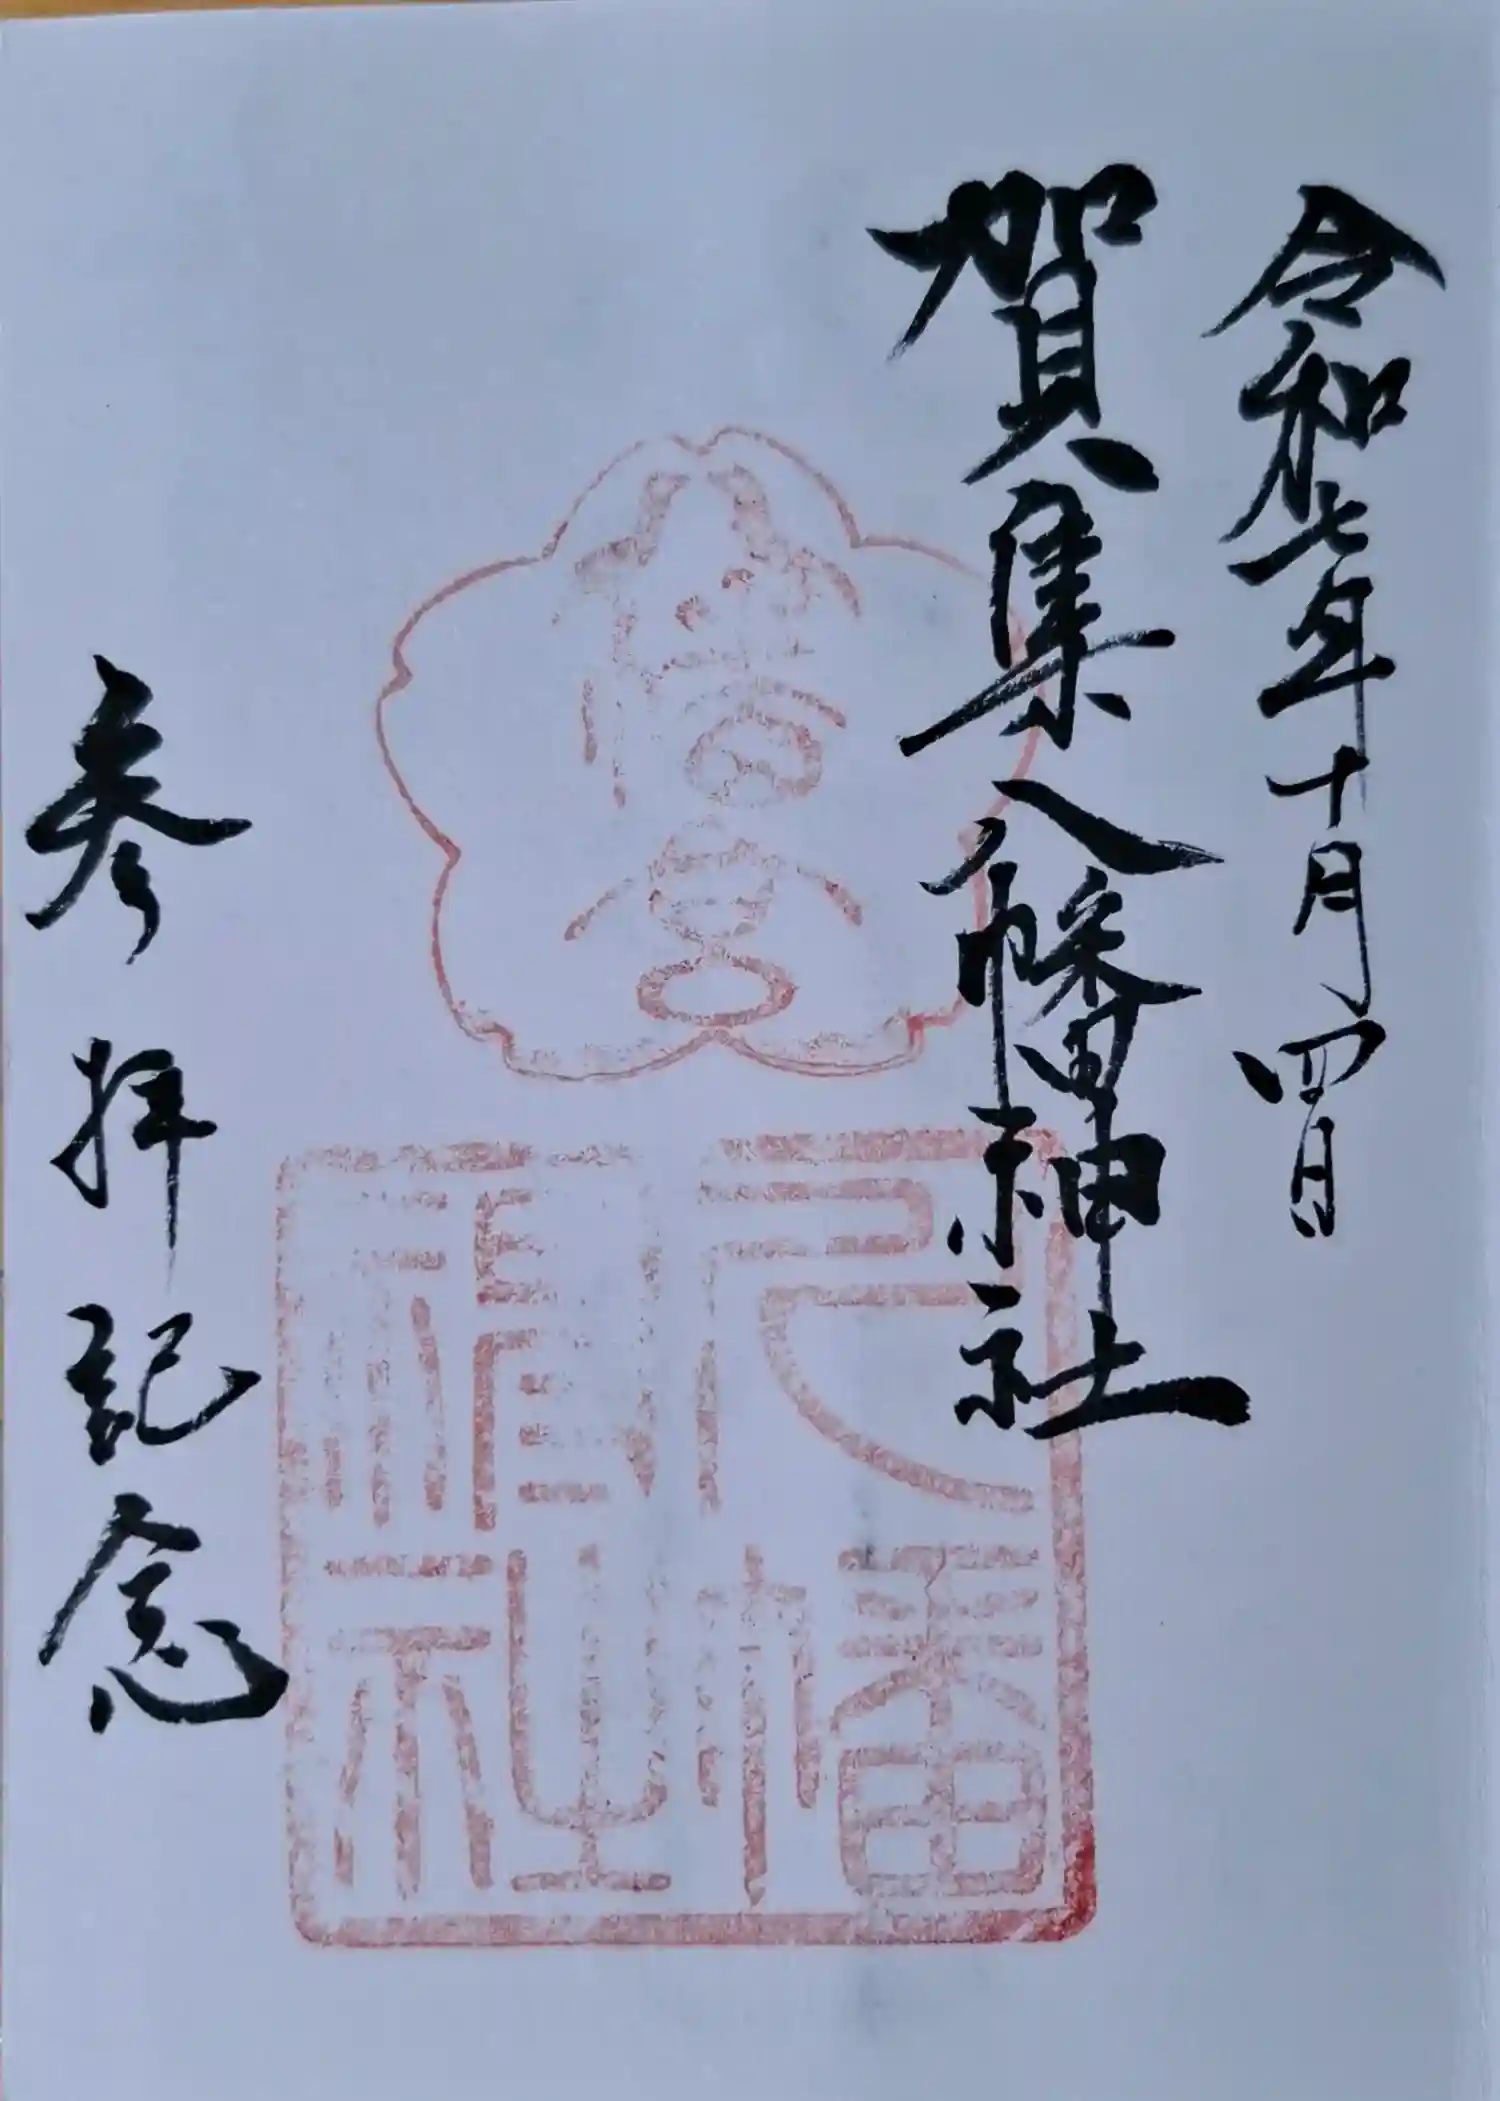 令和七年十月四日
賀集八幡神社
八幡
神社
参拝記念